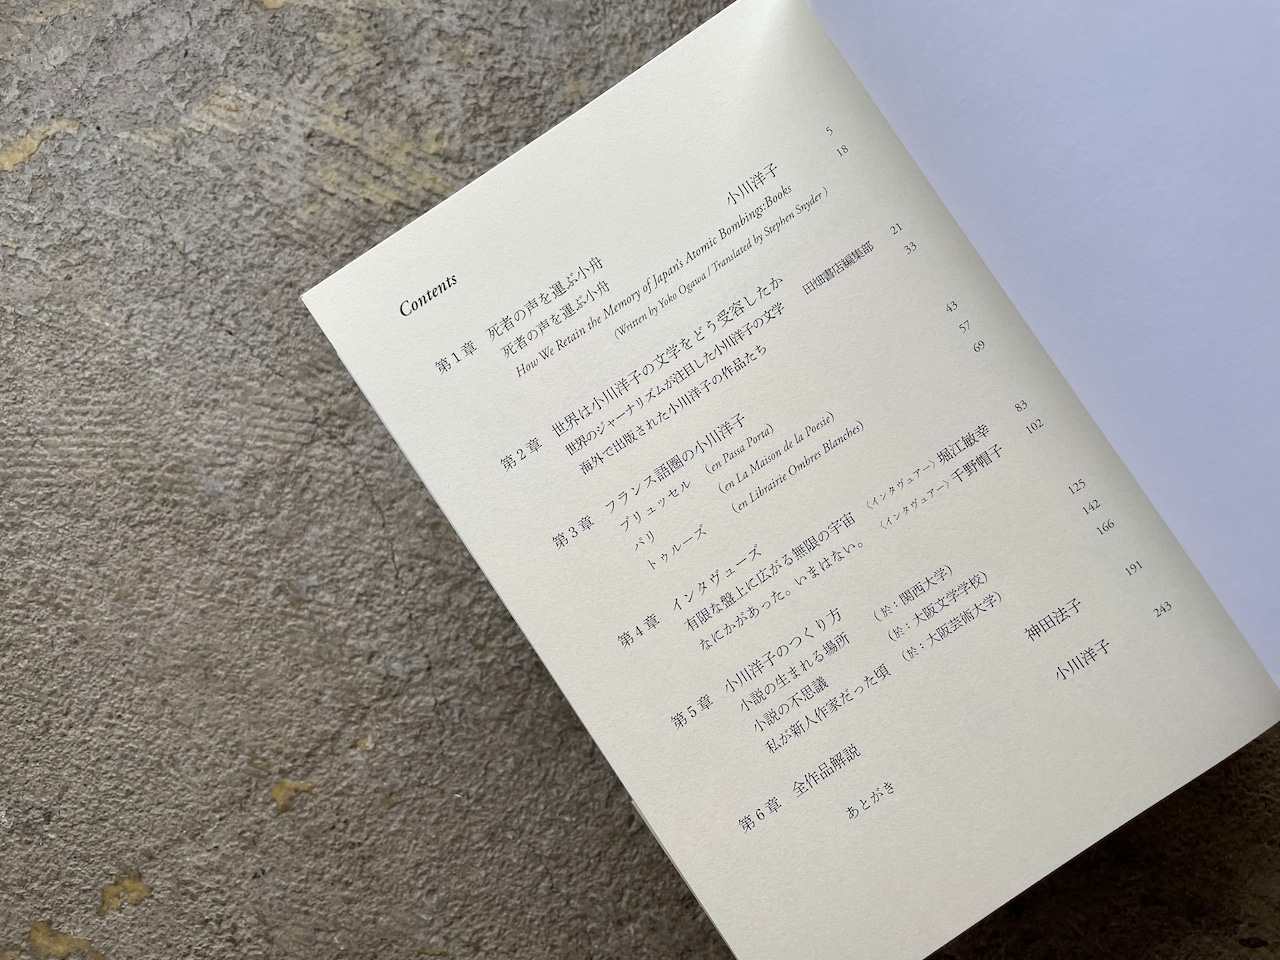 Contents
第1章 死者の声を運ぶ小舟
死者の声を運ぶ小舟 小川洋子 5
How We Retain the Memory of Japan's Atomic Bombings:Books 18
(Written by Yoko Ogawa / Translated by Stephen Snyder )
第2章 世界は小川洋子の文学をどう受容したか
世界のジャーナリズムが注目した小川洋子の文学 21
海外で出版された小川洋子の作品たち 田畑書店編集部 33
第3章 フランス語圏の小川洋子
ブリュッセル (en Passa Porta) 43
パリ (en La Maison de la Poesie) 57
トゥルーズ (en Librairie Ombres Blanches) 69
第4章 インタヴューズ
有限な盤上に広がる無限の宇宙 〈インタヴュアー〉堀江敏幸 83
なにかがあった。いまはない。 〈インタヴュアー〉千野帽子 102
第5章 小川洋子のつくり方
小説の生まれる場所 (於：関西大学) 125
小説の不思議 (於：大阪文学学校) 142
私が新人作家だった頃 (於：大阪芸術大学) 166
第6章 全作品解説 神田法子 191
あとがき 小川洋子 243